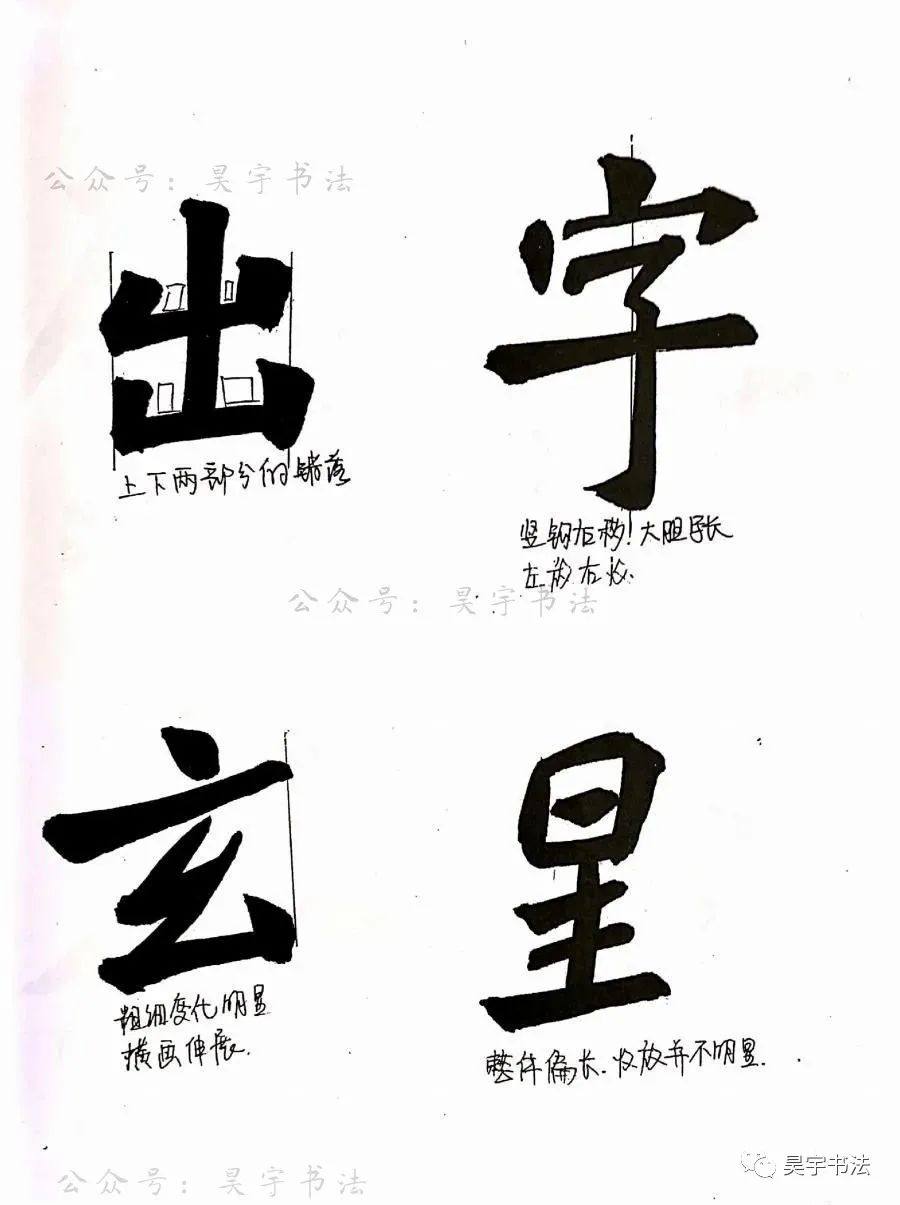 公众号：昊宇书法
出
上下两部分的错落
字
竖钩右移！大胆写长
左放右收.
公众号：昊宇书法
玄
粗细变化明显
横画伸展.
星
整体偏长.收放并不明显.
昊宇书法
公众号：昊宇书法